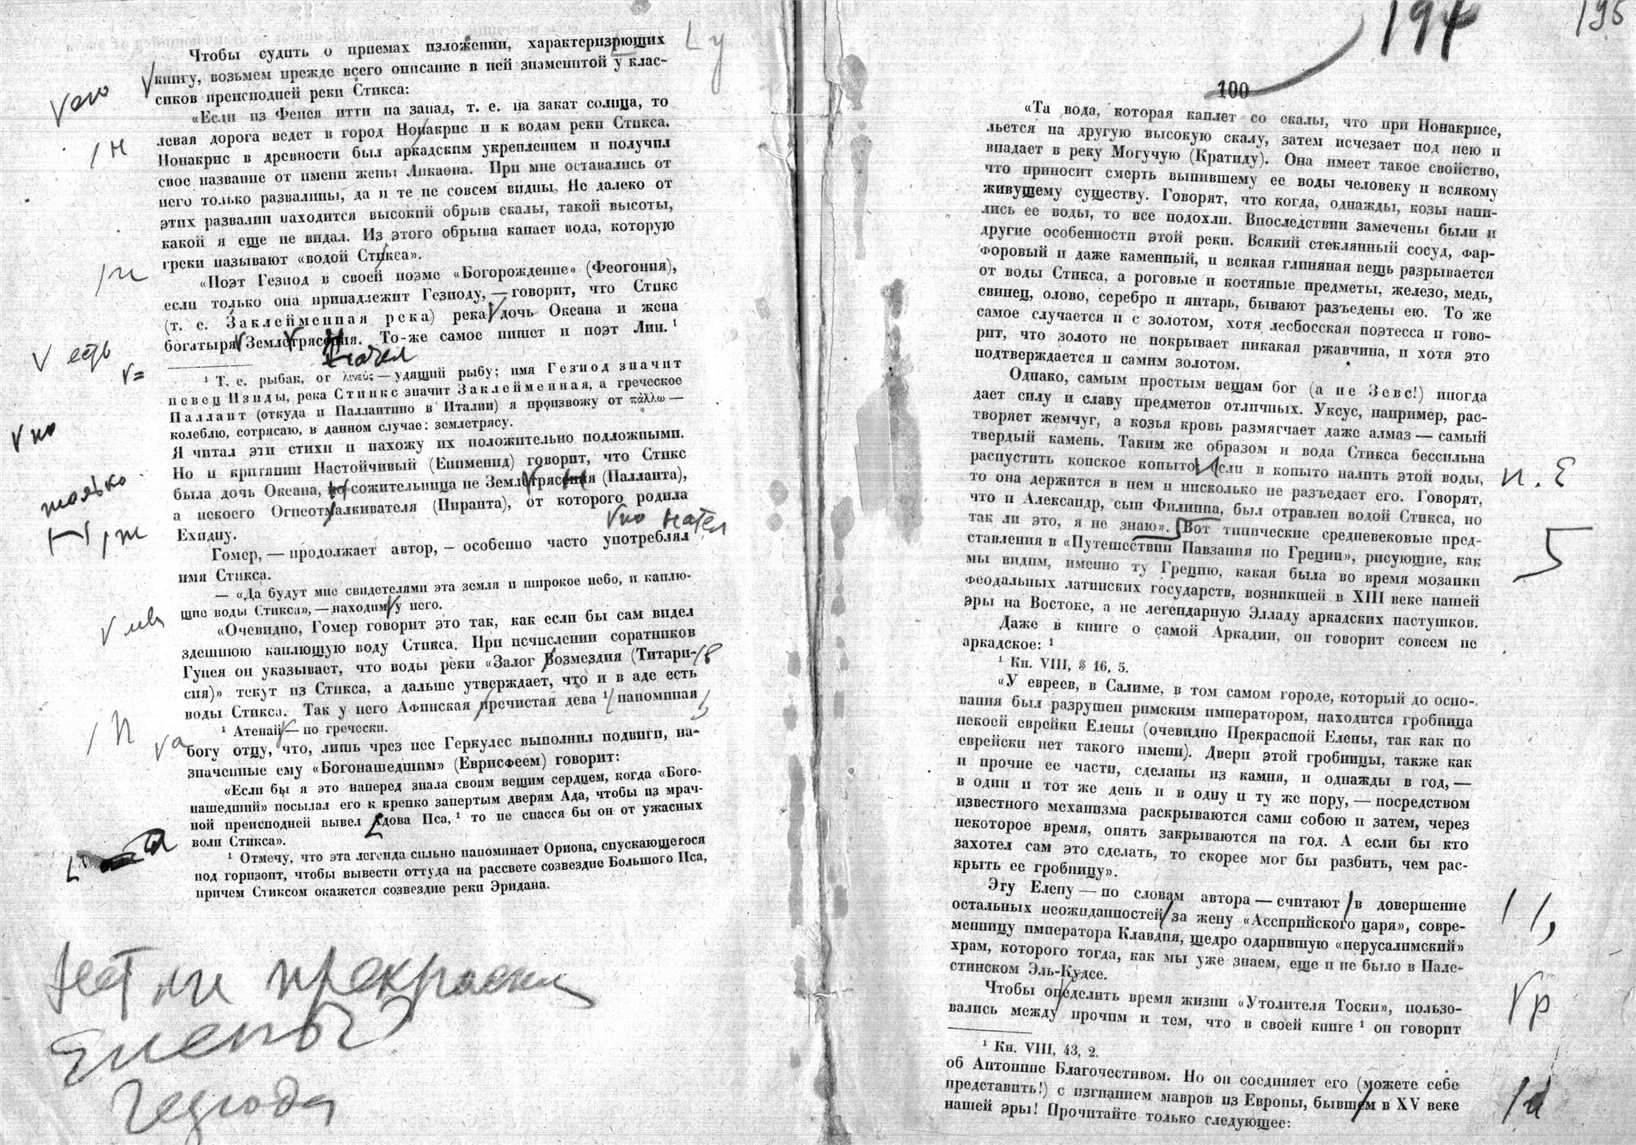 Чтобы судить о приемах изложения, характеризрющих
книгу, возьмем прежде всего описание в ней знаменитой у клас-
сиков преисподней реки Стикса:
«Если из Фенея итти на запад, т. е. на закат солнца, то
левая дорога ведет в город Нонакрис и к водам реки Стикса.
Нонакрис в древности был аркадским укреплением и получил
свое название от имени жены Ликаона. При мне оставались от
него только развалины, да и те не совсем видны. Не далеко от
этих развалин находится высокий обрыв скалы, такой высоты,
какой я еще не видал. Из этого обрыва капает вода, которую
греки называют «водой Стикса».
«Поэт Гезиод в своей поэме «Богорождение» (Феогония),
если только она принадлежит Гезиоду, — говорит, что Стикс
(т. е. Заклейменная река) река дочь Океана и жена
богатыря Землетрясения. То-же самое пишет и поэт Лин. ¹
¹ Т. е. рыбак, от λινεύς — удящий рыбу; имя Гезиод значит
певец Изиды, река Стикс значит Заклейменная, а греческое
Паллант (откуда и Паллантино в Италии) я произвожу от πάλλω —
колеблю, сотрясаю, в данном случае: землетрясу.
Я читал эти стихи и нахожу их положительно подложными.
Но и критянин Настойчивый (Епименид) говорит, что Стикс
была дочь Океана, но сожительница не Землетрясения (Палланта),
а некоего Огнеоталкивателя (Пиранта), от которого родила
Ехидну.
Гомер, — продолжает автор, — особенно часто употреблял
имя Стикса.
— «Да будут мне свидетелями эта земля и широкое небо, и каплю-
щие воды Стикса», — находим у него.
«Очевидно, Гомер говорит это так, как если бы сам видел
здешнюю каплющую воду Стикса. При исчислении соратников
Гунея он указывает, что воды реки «Залог Возмездия (Титари-
сия)» текут из Стикса, а дальше утверждает, что и в аде есть
воды Стикса. Так у него Афинская пречистая дева ¹ напоминая
¹ Атенаи — по гречески.
богу отцу, что, лишь чрез нее Геркулес выполнил подвиги, на-
значенные ему «Богонашедшим» (Еврисфеем) говорит:
«Если бы я это наперед знала своим вещим сердцем, когда «Бого-
нашедший» посылал его к крепко запертым дверям Ада, чтобы из мрач-
ной преисподней вывел Адова Пса, ¹ то не спасся бы он от ужасных
волн Стикса».
¹ Отмечу, что эта легенда сильно напоминает Ориона, спускающегося
под горизонт, чтобы вывести оттуда на рассвете созвездие Большого Пса,
причем Стиксом окажется созвездие реки Эридана.
есть
но
только
Нет ли прекрасн
Елены?
194
195
100
«Та вода, которая каплет со скалы, что при Нонакрисе,
льется на другую высокую скалу, затем исчезает под нею и
впадает в реку Могучую (Кратиду). Она имеет такое свойство,
что приносит смерть выпившему ее воды человеку и всякому
живущему существу. Говорят, что когда, однажды, козы напи-
лись ее воды, то все подохли. Впоследствии замечены были и
другие особенности этой реки. Всякий стеклянный сосуд, фар-
форовый и даже каменный, и всякая глиняная вещь разрывается
от воды Стикса, а роговые и костяные предметы, железо, медь,
свинец, олово, серебро и янтарь, бывают разъедены ею. То же
самое случается и с золотом, хотя лесбосская поэтесса и гово-
рит, что золото не покрывает никакая ржавчина, и хотя это
подтверждается и самим золотом.
Однако, самым простым вещам бог (а не Зевс!) иногда
дает силу и славу предметов отличных. Уксус, например, рас-
творяет жемчуг, а козья кровь размягчает даже алмаз — самый
твердый камень. Таким же образом и вода Стикса бессильна
распустить конское копыто. Если в копыто налить этой воды,
то она держится в нем и нисколько не разъедает его. Говорят,
что и Александр, сын Филиппа, был отравлен водой Стикса, но
так ли это, я не знаю». Вот типические средневековые пред-
ставления в «Путешествии Павзания по Греции», рисующие, как
мы видим, именно ту Грецию, какая была во время мозаики
феодальных латинских государств, возникшей в XIII веке нашей
эры на Востоке, а не легендарную Элладу аркадских пастушков.
Даже в книге о самой Аркадии, он говорит совсем не
аркадское: ¹
¹ Кн. VIII, § 16, 5.
«У евреев, в Салиме, в том самом городе, который до осно-
вания был разрушен римским императором, находится гробница
некоей еврейки Елены (очевидно Прекрасной Елены, так как по
еврейски нет такого имени). Двери этой гробницы, также как
и прочие ее части, сделаны из камня, и однажды в год, —
в один и тот же день и в одну и ту же пору, — посредством
известного механизма раскрываются сами собою и затем, через
некоторое время, опять закрываются на год. А если бы кто
захотел сам это сделать, то скорее мог бы разбить, чем рас-
крыть ее гробницу».
Эту Елену — по словам автора — считают в довершение
остальных неожиданностей за жену «Ассирийского царя», совре-
менницу императора Клавдия, щедро одарившую «иерусалимский»
храм, которого тогда, как мы уже знаем, еще и не было в Пале-
стинском Эль-Кудсе.
Чтобы опеделить время жизни «Утолителя Тоски», пользо-
вались между прочим и тем, что в своей книге ¹ он говорит
¹ Кн. VIII, 43, 2.
об Антонине Благочестивом. Но он соединяет его (можете себе
представить!) с изгнанием мавров из Европы, бывшем в XV веке
нашей эры! Прочитайте только следующее: